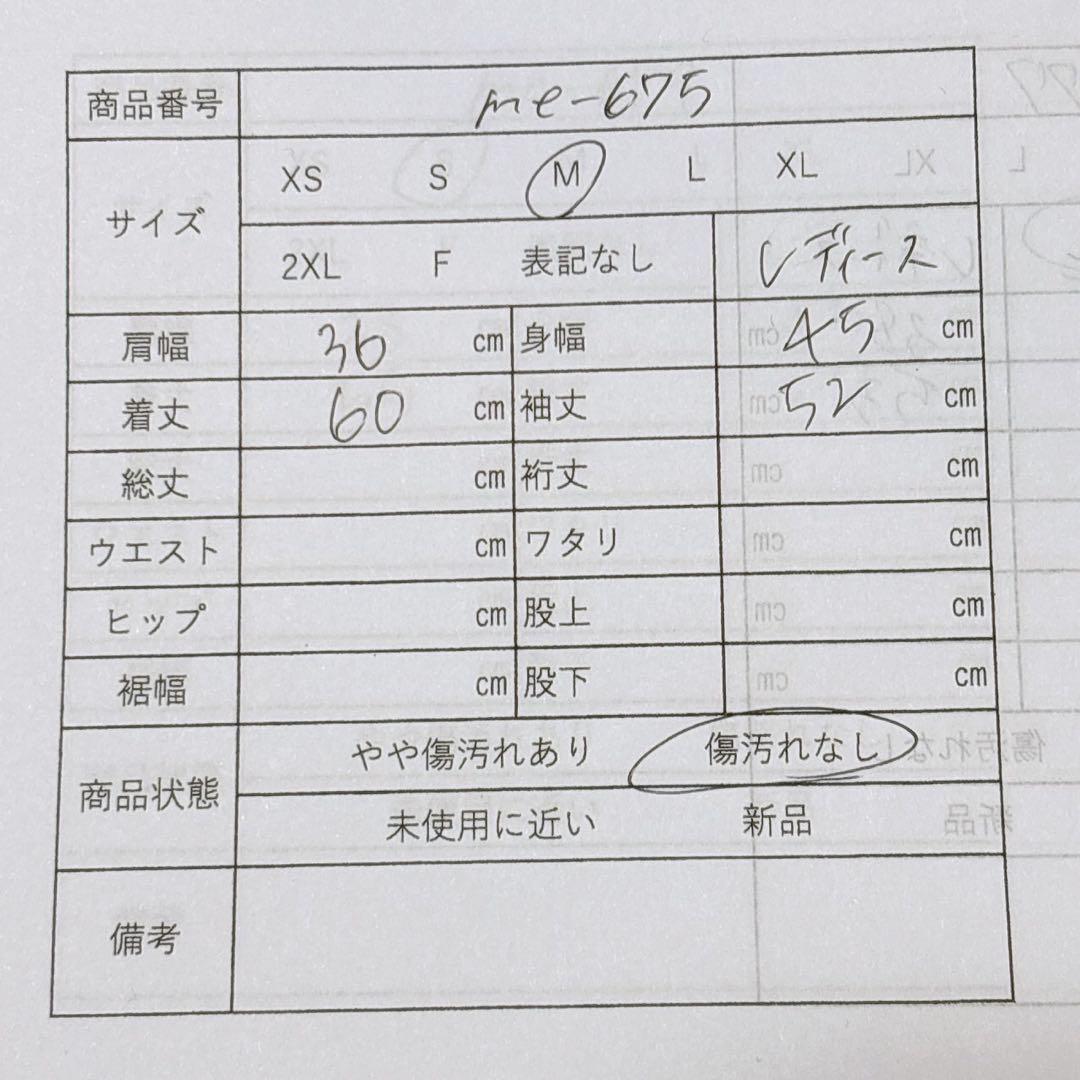 商品番号 me-675
サイズ XS S M L XL
2XL F 表記なし レディース
肩幅 36 cm 身幅 45 cm
着丈 60 cm 袖丈 52 cm
総丈 cm 裄丈 cm
ウエスト cm ワタリ cm
ヒップ cm 股上 cm
裾幅 cm 股下 cm
商品状態 やや傷汚れあり 傷汚れなし
未使用に近い 新品
備考